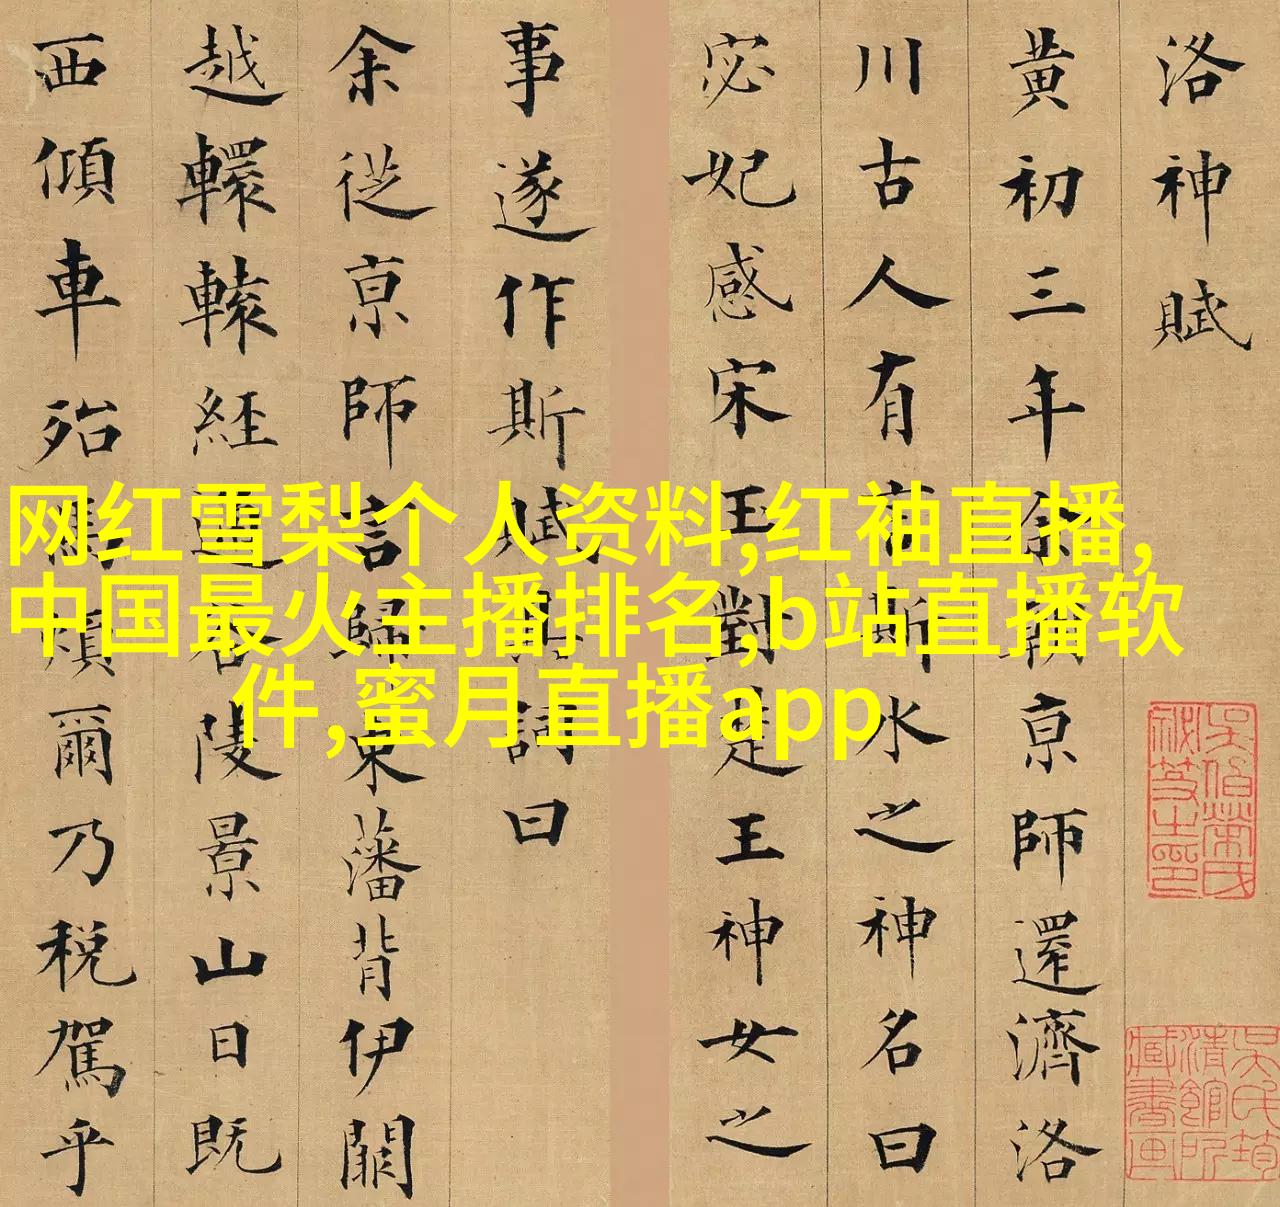 洛神賦
黄初三年余朝亰師還濟洛
川古人有言斯水之神名曰
宓妃感宋玉對楚王神女之
事遂作斯賦其詞曰
余從亰師言歸東藩背伊闕
越轘轅經通谷陵景山日既
西傾車殆馬煩爾乃税駕乎
吴氏筠清館所藏書画
网红雪梨个人资料,红袖直播,
中国最火主播排名,b站直播软
件,蜜月直播app